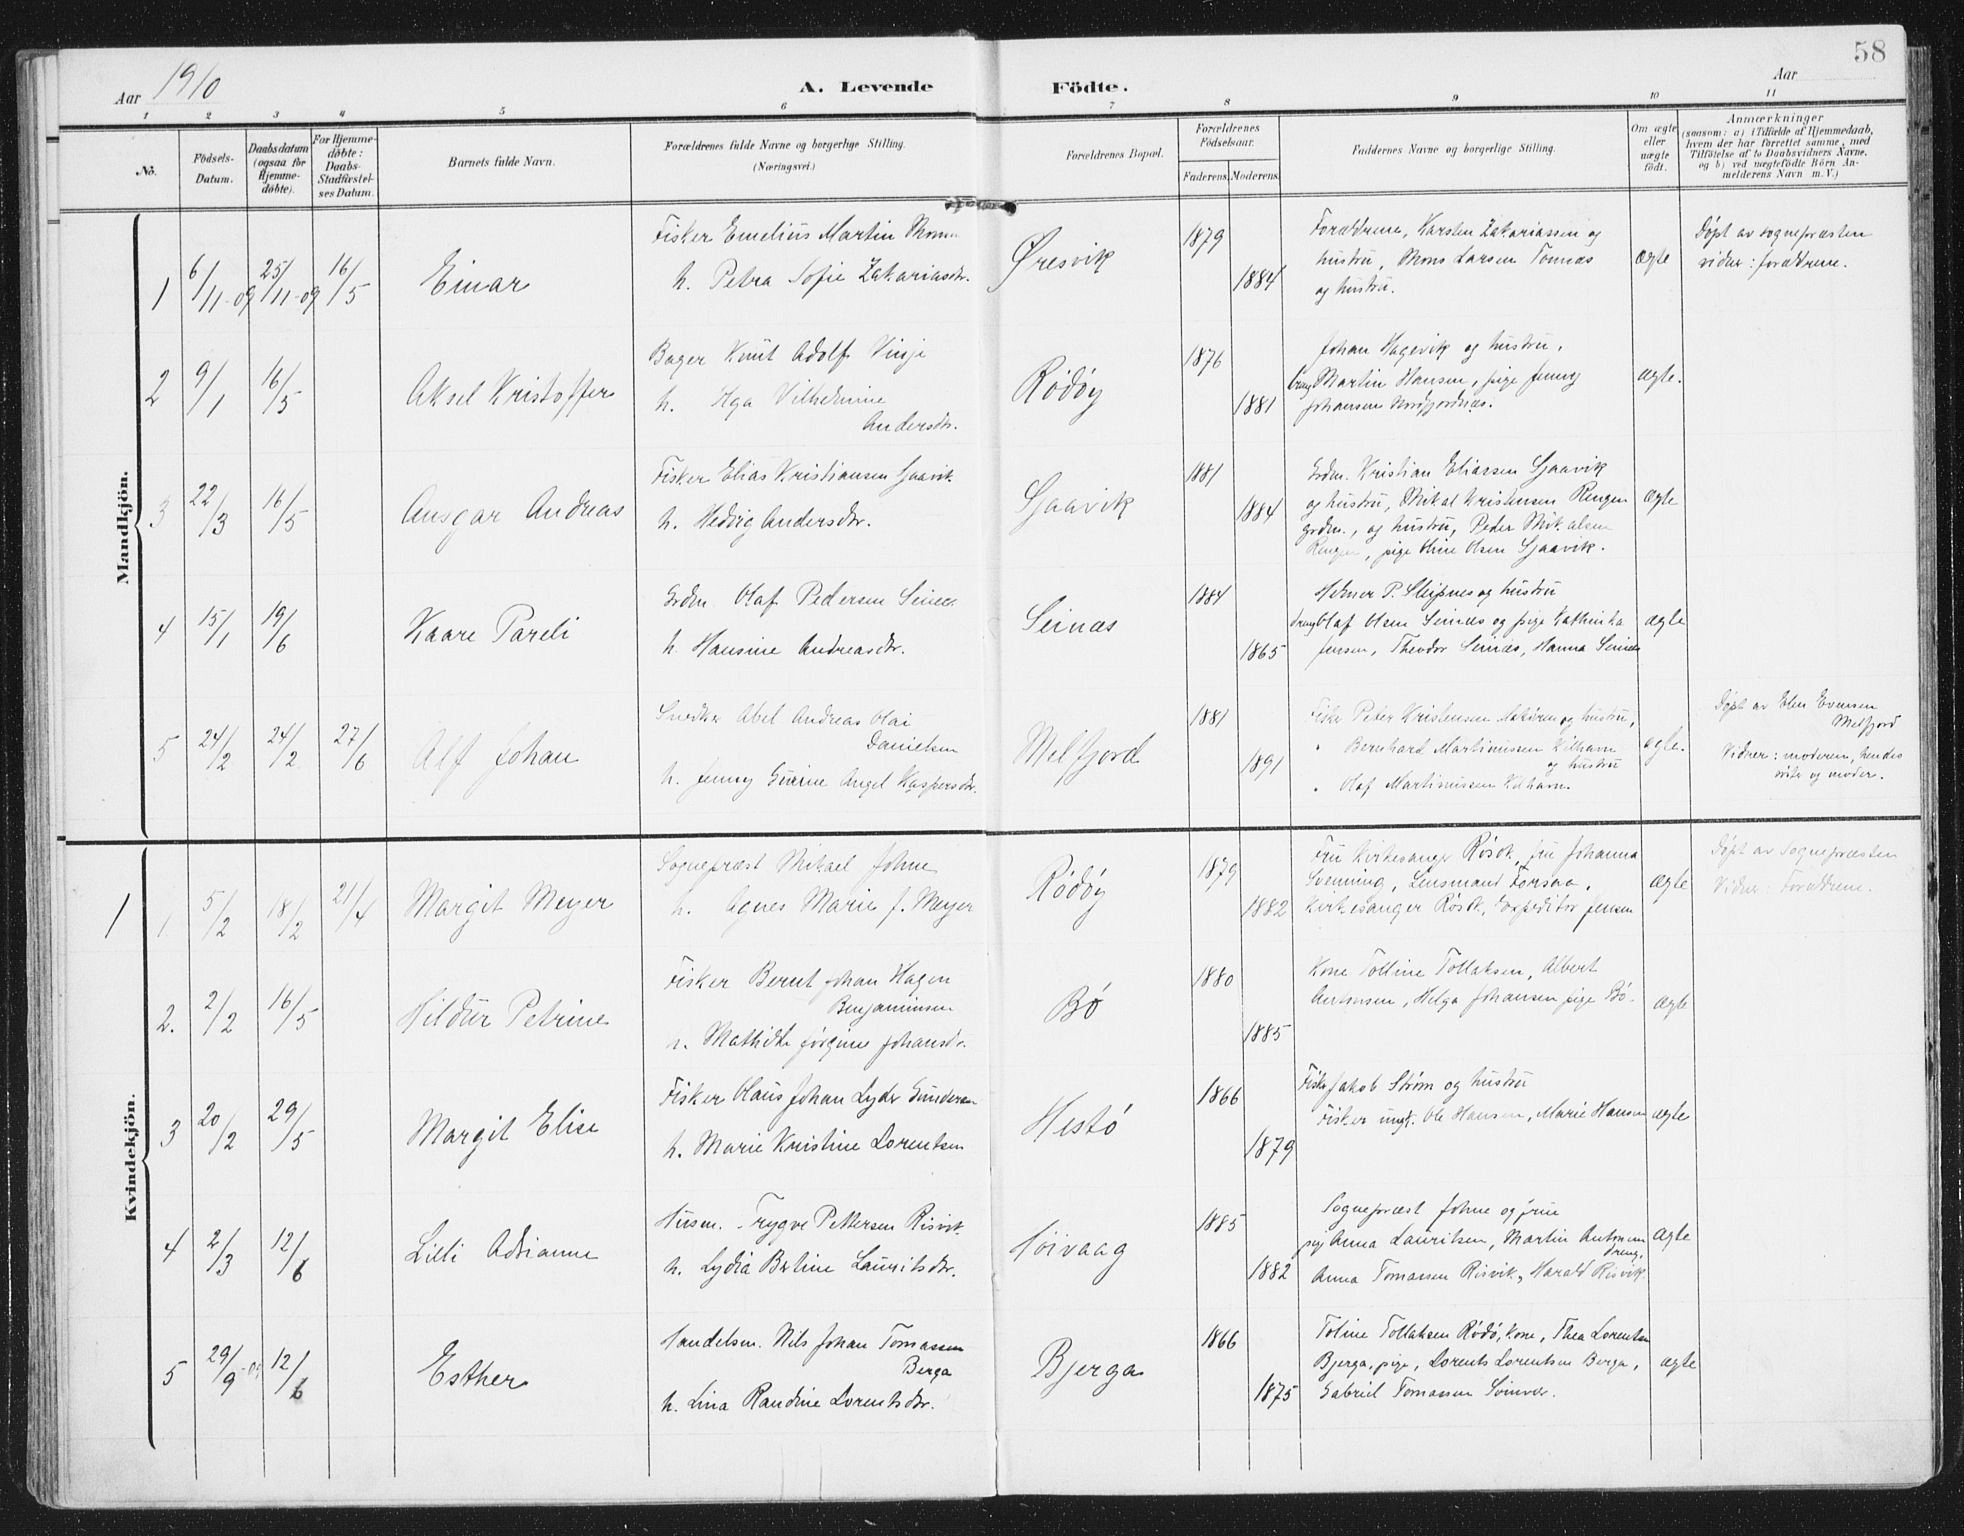 58
Aar 1910
A. Levende Födte.
Aar
1 2 3 4 5 6 7 8 9 10 11
No.
Födsels-Datum.
Daabsdatum (ogsaa for Hjemme-døbte).
For Hjemme-døbte: Daabs-Stadfæstel-ses Datum.
Barnets fulde Navn.
Forældrenes fulde Navne og borgerlige Stilling.
(Næringsvei.)
Forældrenes Bopæl.
Forældrenes Födselsaar.
Faderens. Moderens.
Faddernes Navne og borgerlige Stilling.
Om ægte eller uægte födt.
Anmærkninger
(saasom: a) i Tilfælde af Hjemmedaab,
hvem der har forrettet samme, med
Tilföielse af to Daabsvidners Navne.
og b) ved uægtefödte Börn An-
melderens Navn m. V.)
Mandkjön.
1 6/11-09 25/11-09 16/5 Einar
Fisker Emelius Martin
h. Petra Sofie Zakariasdr.
Øresvik 1879 1884
Forældrene, Karsten Zakariassen og
hustru, Mons Larsen Tonnæs
og hustru.
ægte
Døpt av sognepræsten
vidner: forældrene.
2 9/1 16/5 Aksel Kristoffer
Bager Knut Adolf Vinje
h. Aga Vilhelmine
Andersdr.
Rödöy 1876 1881
Johan Hagevik og hustru,
Martin Hansen, pige Jenny
Johansen Nordfjordnæs.
ægte.
3 22/3 16/5 Ansgar Andreas
Fisker Elias Kristiansen Sjaavik
h. Hedvig Andersdr.
Sjaavik 1881 1884
Grdm. Kristian Eliassen Sjaavik
og hustru, Mikal Kristensen Rengen
grdm., og hustru, Peder Mikalsen
Rengen, pige Oline Olsen Sjaavik.
ægte
4 15/1 19/6 Kaare Pareli
Grdm. Olaf Pedersen Seines
h. Hansine Andreasdr.
Seinæs 1884 1865
Helmer P. Sleipnes og hustru
Olaf Olsen Seinæs og pige Kathinka
Jensen, Theodor Seinæs, Hanna Seinæs
ægte
5 24/2 24/2 27/6 Alf Johan
Snedker Abel Andreas Olai
Danielsen
h. Jenny Gurine Angel Kaspersdr.
Melfjord 1881 1891
Fisker Peter Kristensen og hustru,
" Bernhard Martinussen Kilhavn
og hustru
" Olaf Martinussen Kilhavn.
ægte.
Døpt av Elen Evensen
Melfjord
Vidner: moderen, hendes
søster og moder.
Kvindekjön.
1 1 5/2 18/2 21/4 Margit Meyer
Sognepræst Mikael Johne
h. Agnes Marie f. Meyer
Rödöy 1879 1882
Fru Kirkesanger Røsok, fru Johanna
Svenning, Lensmand Forsaa,
Kirkesanger Røsok, Expeditør Jensen
ægte
Døpt av Sognepræsten
Vidner: Forældrene.
2. 2/2 16/5 Hildur Petrine
Fisker Bernt Johan Hagen
Benjaminsen
h. Mathilde Jørgine Johansdr.
Bö 1880 1885
Kone Tolline Tollaksen, Albert
Antonsen, Helga Johansen pige Bö.
ægte
3 20/2 29/5 Margit Elise
Fisker Olaus Johan Lyder Gundersen
h. Marie Kristine Lorentsen
Hestö 1866 1879
Fisker Jakob Strøm og hustru
Fisker ungk. Ole Hansen, Marie Hansen
ægte
4 2/3 12/6 Lilli Adrianne
Husm. Trygve Pettersen Risvik
h. Lydia Bertine Lauritsdr.
1885 1882
Sognepræst Johne og frue
pige Anna Lauritsen, Martin Antonsen
dreng,
Anna Tomassen Risvik, Harald Risvik
ægte
5 29/9-09 12/6 Esther
Handelsm. Nils Johan Tomassen
Berga
h. Lina Randine Lorentsdr.
Bjerga 1866 1875
Toline Tollaksen Rödö, kone, Thea Lorentsen
Bjerga, pige, Lorents Lorentsen Berga,
Gabriel Tomassen
ægte